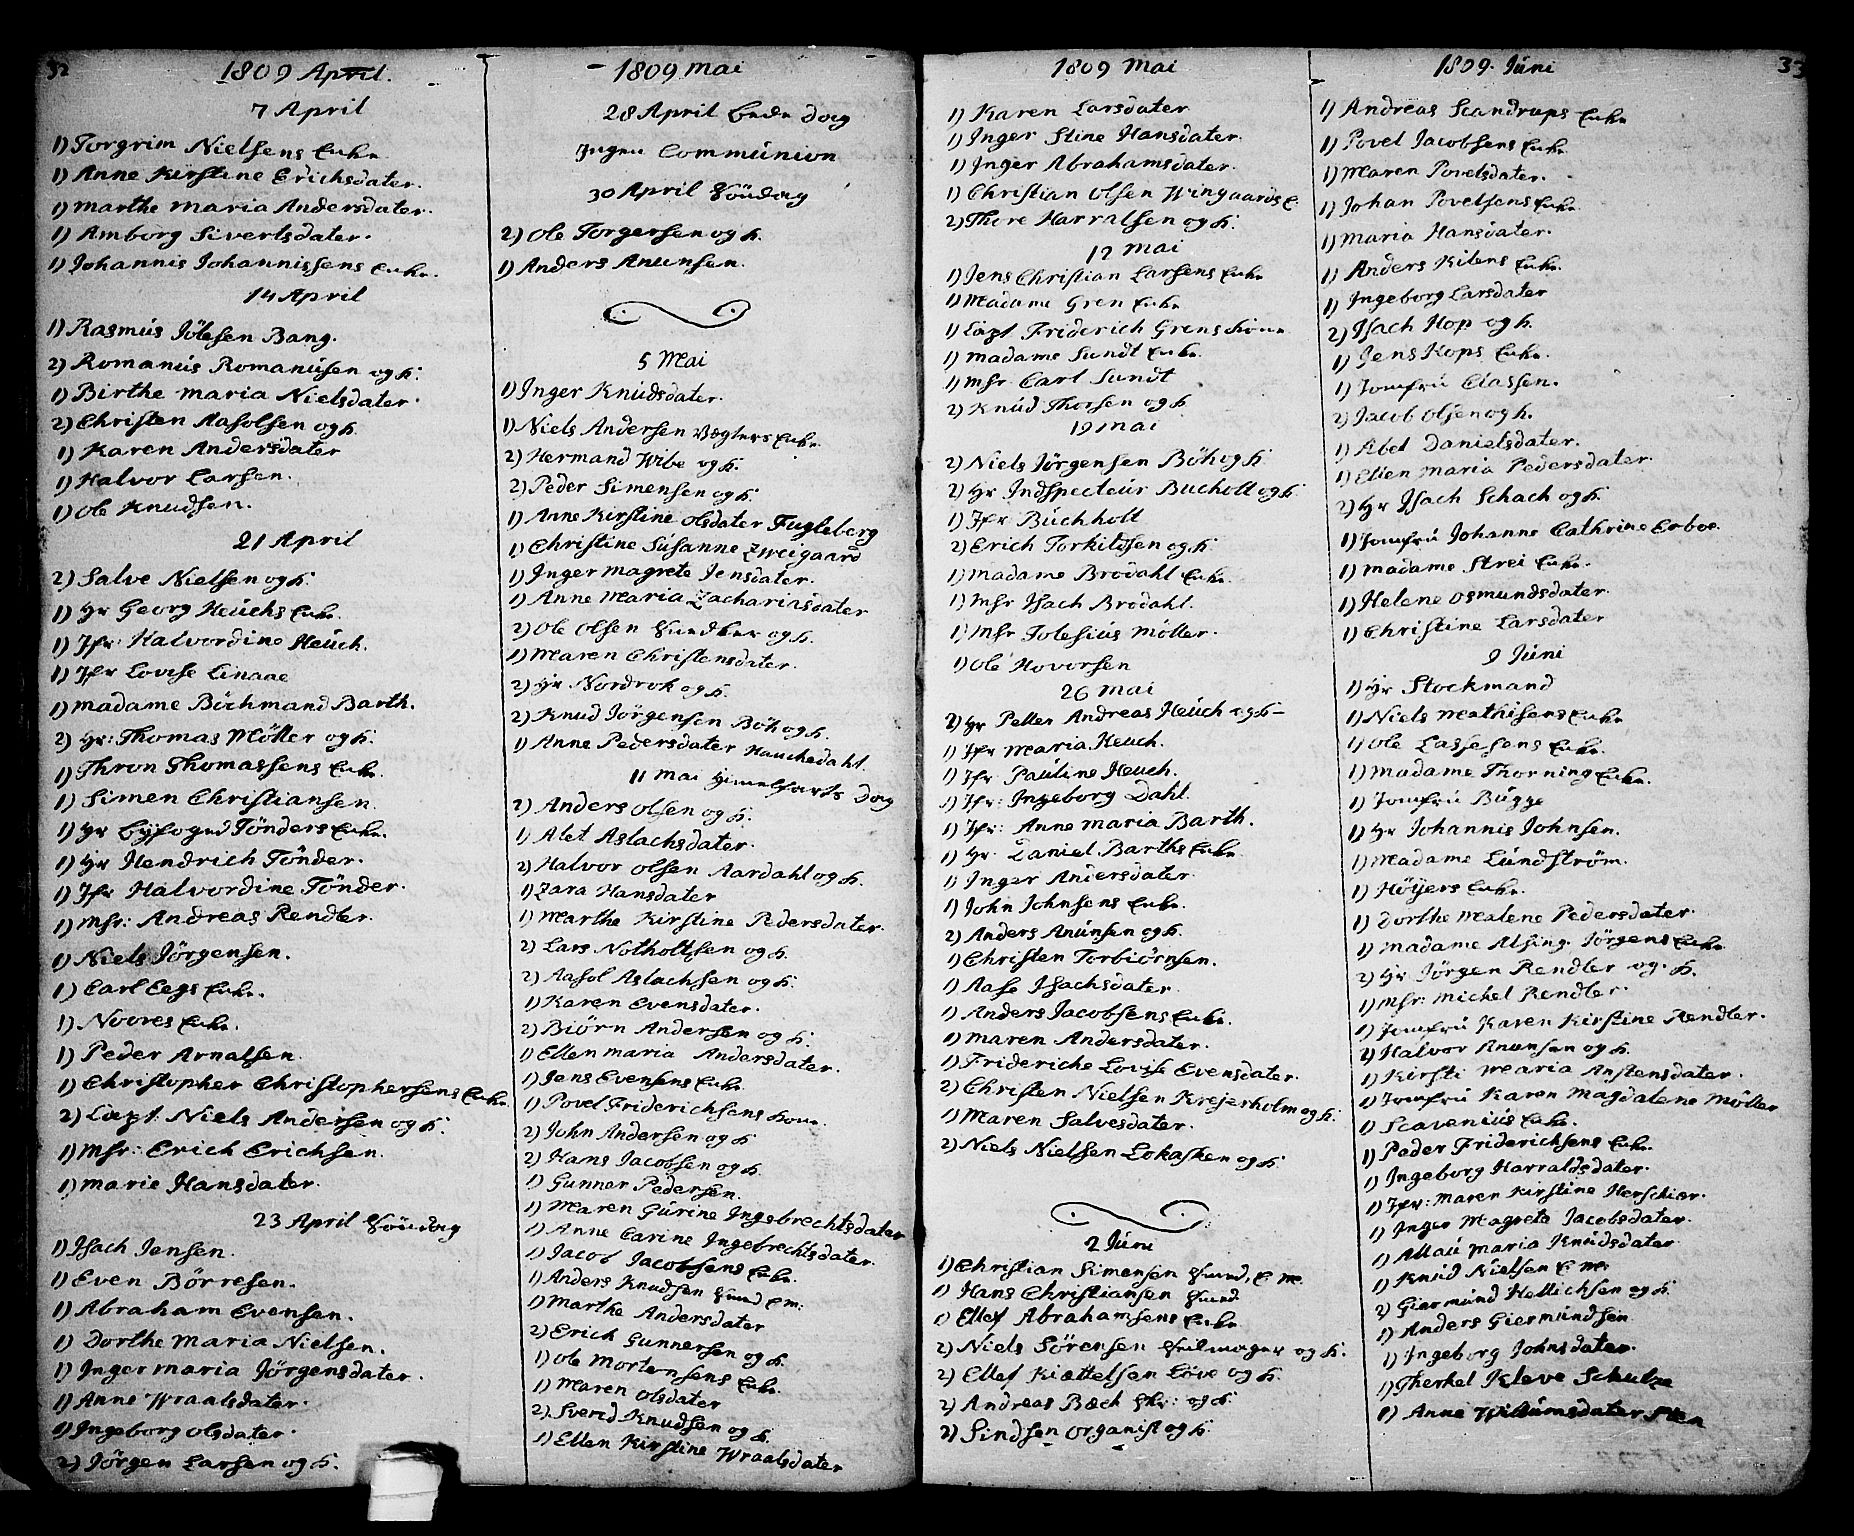 32
1809 April.
7 April
1) Torgrim Nielsens Enke
1) Anne Kirstine Erichsdater.
1) Marthe Maria Andersdater.
1) Amborg Sivertsdater.
1) Johannis Johannissens Enke.
14 April
1) Rasmus Jölesen Bang.
2) Romanus Romanusen og K.
1) Birthe Maria Nielsdater.
2) Christen Aasolsen og K.
1) Karen Andersdater
1) Halvor Larsen.
1) Ole Knudsen.
21 April
2) Salve Nielsen og K.
1) Hr Georg Heuchs Enke.
1) Jfr: Halvordine Heuch.
1) Jfr Lovise Linaae
1) Madame Böchmand Barth.
2) Hr: Thomas Möller og K.
1) Thron Thomassens Enke.
1) Simen Christiansen.
1) Hr Byfoged Tönders Enke.
1) Hr Hendrich Tönder.
1) Jfr Halvordine Tönder.
1) Msr: Andreas Rendler.
1) Niels Jörgensen.
1) Carl Eegs Enke.
1) Noores Enke.
1) Peder Arnalsen.
1) Christopher Christophersens Enke.
2) Capt: Niels Andersen og K.
1) Msr: Erich Erichsen.
1) Marie Hansdater.
23 April Söndag
1) Isach Jensen.
1) Even Börresen.
1) Abraham Evensen.
1) Dorthe Maria Nielsen.
1) Inger Maria Jörgensdater.
1) Anne Wraalsdater.
1) Ingeborg Olsdater.
2) Jörgen Larsen og K.
1809 Mai
28 April Bede Dag
Ingen Communion
30 April Söndag
2) Ole Torgersen og K.
1) Anders Anunsen.
5 Mai
1) Inger Knudsdater.
1) Niels Andersen Vegters Enke.
2) Hermand Wibe og K.
2) Peder Simensen og K.
1) Anne Kirstine Olsdater Fugleberg
1) Christine Susanne Zweigaard
1) Inger Magrete Jensdater.
1) Anne Maria Zachariasdater
2) Ole Olsen og K.
1) Maren Christensdater.
2) Hr Nordrok og K.
2) Knud Jörgensen Böh og K.
1) Anne Pedersdater Hauchedahl.
11 Mai Himmelfarts Dag
2) Anders Olsen og K.
1) Alet Aslachsdater.
2) Halvor Olsen Aardahl og K.
1) Zara Hansdater
1) Marthe Kirstine Pedersdater.
2) Lars Notholtsen og K.
2) Aasol Aslachsen og K.
1) Karen Evensdater.
2) Biörn Andersen og K.
1) Ellen Maria Andersdater.
1) Jens Evensens Enke.
1) Povel Friderichsens Kone.
2) John Andersen og K
2) Hans Jacobsen og K
1) Gunner Pedersen.
1) Maren Gurine Ingebrechtsdater
1) Anne Carine Ingebrechtsdater.
1) Jacob Jacobsens Enke.
1) Anders Knudsen E M:
1) Marthe Andersdater
2) Erich Gunnersen og K.
1) Ole Mortensens Enke.
1) Maren Olsdater
2) Svend Knudsen og K.
1) Ellen Kirstine Wraalsdater
1809 Mai
1) Karen Larsdater
1) Inger Stine Hansdater.
1) Inger Abrahamsdater.
1) Christian Olsen Wingaards E.
2) Thore Harralsen og K.
12 Mai
1) Jens Christian Larsens Enke
1) Madame Gren Enke
1) Capt Friderich Grens Kone
1) Madame Sundt Enke.
1) Msr. Carl Sundt
2) Knud Thorsen og K
19 Mai
2) Niels Jörgensen Böh og K
2) Hr Indspecteur Bucholt og K
1) Jfr Buchholt
2) Erich Torkildsen og K
1) Madame Brodahl Enke.
1) Msr Isach Brodahl.
1) Msr Tolesius Möller.
1) Ole Hovorsen
26 Mai
2) Hr Petter Andreas Heuch og K
1) Jfr Maria Heuch.
1) Jfr Pauline Heuch.
1) Jfr: Ingeborg Dahl.
1) Jfr: Anne Maria Barth.
1) Hr. Daniel Barths Enke
1) Inger Andersdater.
1) John Johnsens Enke.
2) Anders Anunsen og K.
1) Christen Torbiörnsen.
1) Aase Isachsdater
1) Anders Jacobsens Enke.
1) Maren Andersdater.
1) Frideriche Lovise Evensdater.
2) Christen Nielsen Krejersholm og K.
1) Maren Salvesdater.
2) Niels Nielsen Lokasken og K.
2 Juni
1) Christian Simensen E M.
1) Hans Christiansen
1) Ellef Abrahamsens Enke
2) Niels Sörensen og K.
2) Ellef Kiettelsen Löve og K.
2) Andreas Bæch og K
2) Lindsen Organist og K.
1809. Juni
33
1) Andreas Scandrups Enke
1) Povel Jacobsens Enke
1) Maren Povelsdater.
1) Johan Povelsens Enke
1) Maria Hansdater.
1) Anders Kilens Enke.
1) Ingeborg Larsdater
2) Isach Hop og K.
1) Jens Hops Enke.
1) Jomfru Classen.
2) Jacob Olsen og K.
1) Abel Danielsdater.
1) Ellen Maria Pedersdater
2) Hr Isach Schach og K.
1) Jomfru Johanne Cathrine Erboe
1) Madame Strei Enke.
1) Helene Osmundsdater.
1) Christine Larsdater
9 Juni
1) Hr Stockmand
1) Niels Mathisens Enke
1) Ole Lassesens Enke.
1) Madame Thorning Enke.
1) Jomfru Bugge
1) Hr Johannis Johnsen.
1) Madame Lundström.
1) Höyers Enke.
1) Dorthe Malene Pedersdater.
1) Madame Alsing. Jörgens Enke
2) Hr Jörgen Rendler og K.
1) Msr: Michel Rendler.
1) Jomfru Karen Kirstine Rendler.
2) Halvor Anunsen og K.
1) Kirsti Maria Anstensdater.
1) Jomfru Karen Magdalene Möller
1) Scavenius Enke.
1) Peder Friderichsens Enke.
1) Ingeborg Harraldsdater.
1) Jfr: Maren Kirstine Herschior.
1) Inger Magrete Jacobsdater.
1) Maria Knudsdater
1) Knud Nielsen E M.
2) Giermund Hellichsen og K.
1) Anders Giermundsen
1) Ingeborg Johnsdater.
1) Therkel Kleve Schulze
1) Anne Willumsdater